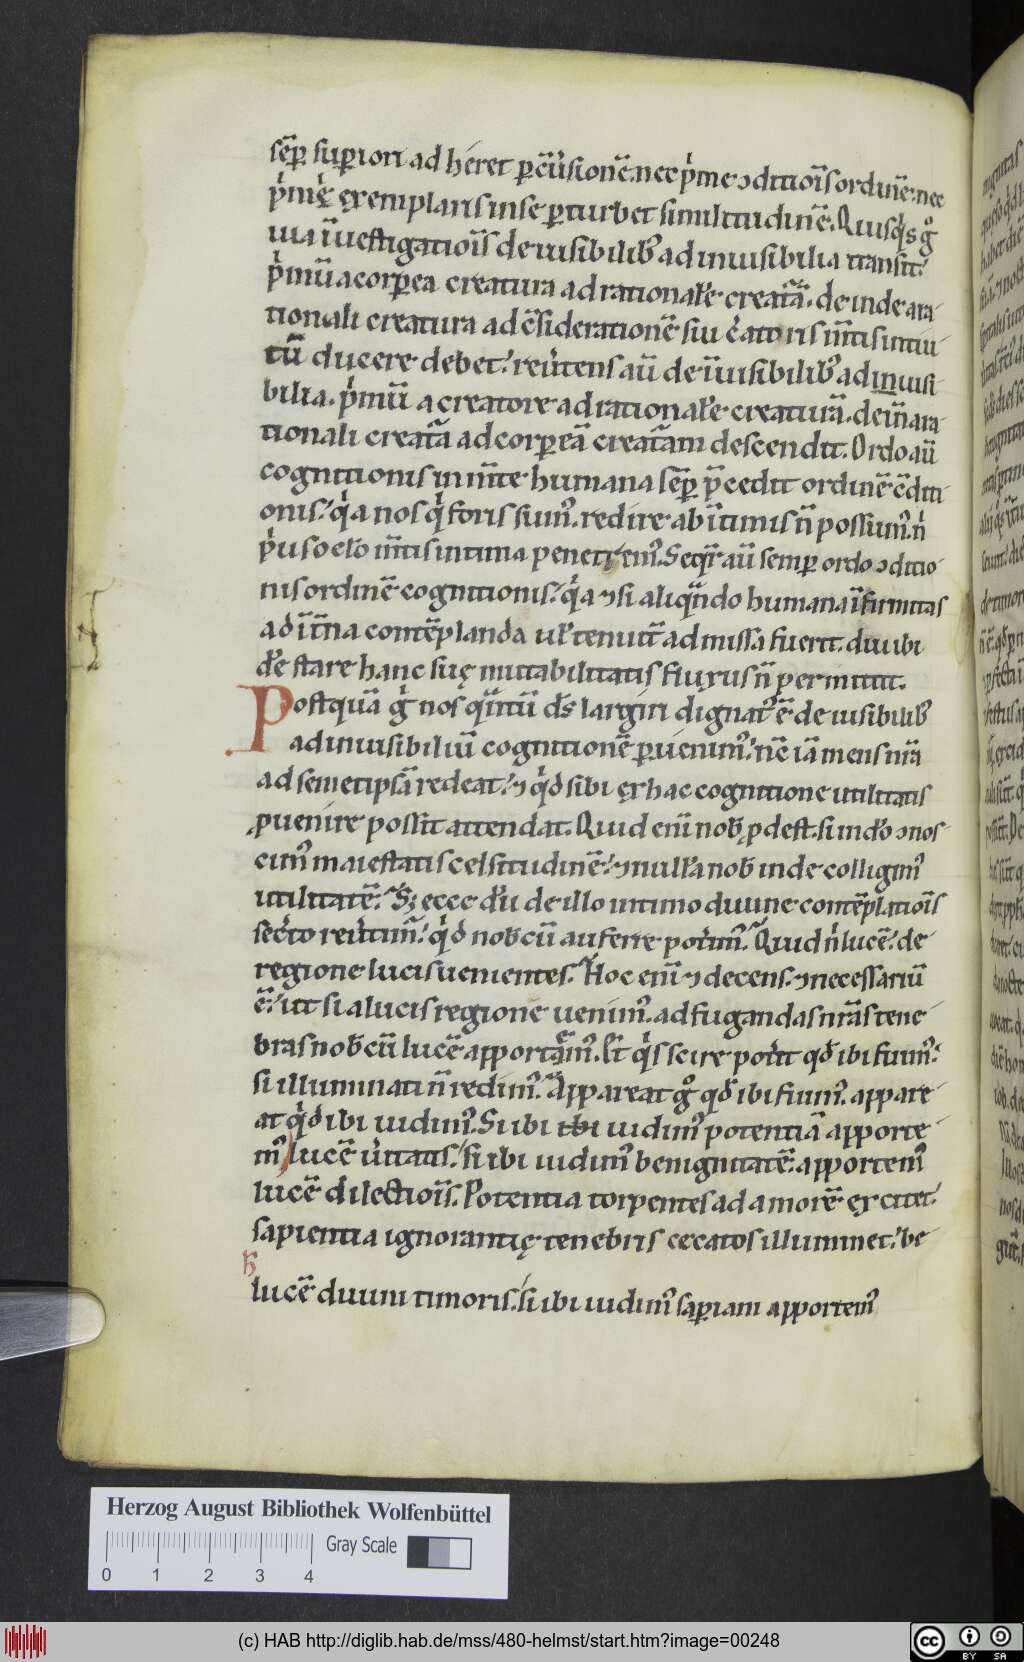 sēp̱ sup̱iori adheret p̱cūsionē. nec pͥme ↄditiōis ordinē. nec
pͥmę̄ exemplaris in se p̱turbet similitudinē. Quisqͥs gͦ
uia īuestigatiōis de uisibilibꝰ ad inuisibilia transit.
pͥmū a corp̱ea creatura ad rationalē creat̄ā. deinde a ra
tionali creatura ad c̄siderationē sui c̄atoris m̄tis intui
tū ducere debet. reu̓tens aū de īuisibilibꝰ ad inuisi
bilia. pͥmū a creatore ad rationalē creaturā. dein̄ a ra
tionali creat̄ā ad corp̱eā creat̄am descendit. Ordo aū
cognitionis in m̄te humana sēp̱ p̄cedit ordinē c̄diti
onis. qͥa nos qͥ foris sumꝰ. redire ab ītimis n̄ possumꝰ. nͥ
pͥus oclo m̄tis intima penetremꝰ. Seqr̄ aū semp̱ ordo ↄditio
nis ordinē cognitionis. qͥa ⁊ si aliqn̄do humana īfirmitas
ad īt̄na contēplanda uł tenuit̄ admissa fuerit. diu ibi
dē stare hanc suę mutabilitatis fluxus n̄ permittit.
Postquā gͥ nos qn̄tū ds̄ largiri dignatꝰ ē de uisibilibꝰ
ad inuisibiliū cognitionē p̱uenimꝰ. nc̄ iā mens nr̄a
ad semetipsā redeat. ⁊ qͥd sibi ex hac cognitione utilitatis
ꝓuenire possit attendat. Quid eni nob̄ ꝓdest. si in dō ↄnos
cimꝰ maiestatis celsitudinē. ⁊ nullā nob̄ inde colligimꝰ
utilitatē. Sꝫ ecce dū de illo intimo diuine contēplatiōis
sec̓to reu̓timꝰ. qͥd nob̄cū auferre pot̓imꝰ. Quid nͥ lucē. de
regione lucis uenientes. Hoc eni ⁊ decens. ⁊ necessariū
ē. ut si a lucis regione uenimꝰ. ad fugandas nr̄as tene
bras nob̄cū lucē apportemꝰ. Et qͥs scire pot̓it qd̄ ibi fuimꝰ.
si illuminati n̄ redimꝰ. Appareat gͦ qd̄ ibi fuimꝰ. appare
at qͥd ibi uidimꝰ. Si ibi ibi uidimꝰ potentiā apporte
mꝰ lucē u̓itatis. si ibi uidimꝰ benignitatē. apportemꝰ
lucē dilectiōis. Potentia torpentes ad amorē excitet.
sapientia ignorantię tenebris cecatos illuminet. be
lucē diuini timoris. si ibi uidimꝰ sap̱iam apportemꝰ
Herzog August Bibliothek Wolfenbüttel
Gray Scale
0 1 2 3 4
(c) HAB http://diglib.hab.de/mss/480-helmst/start.htm?image=00248
cc BY SA